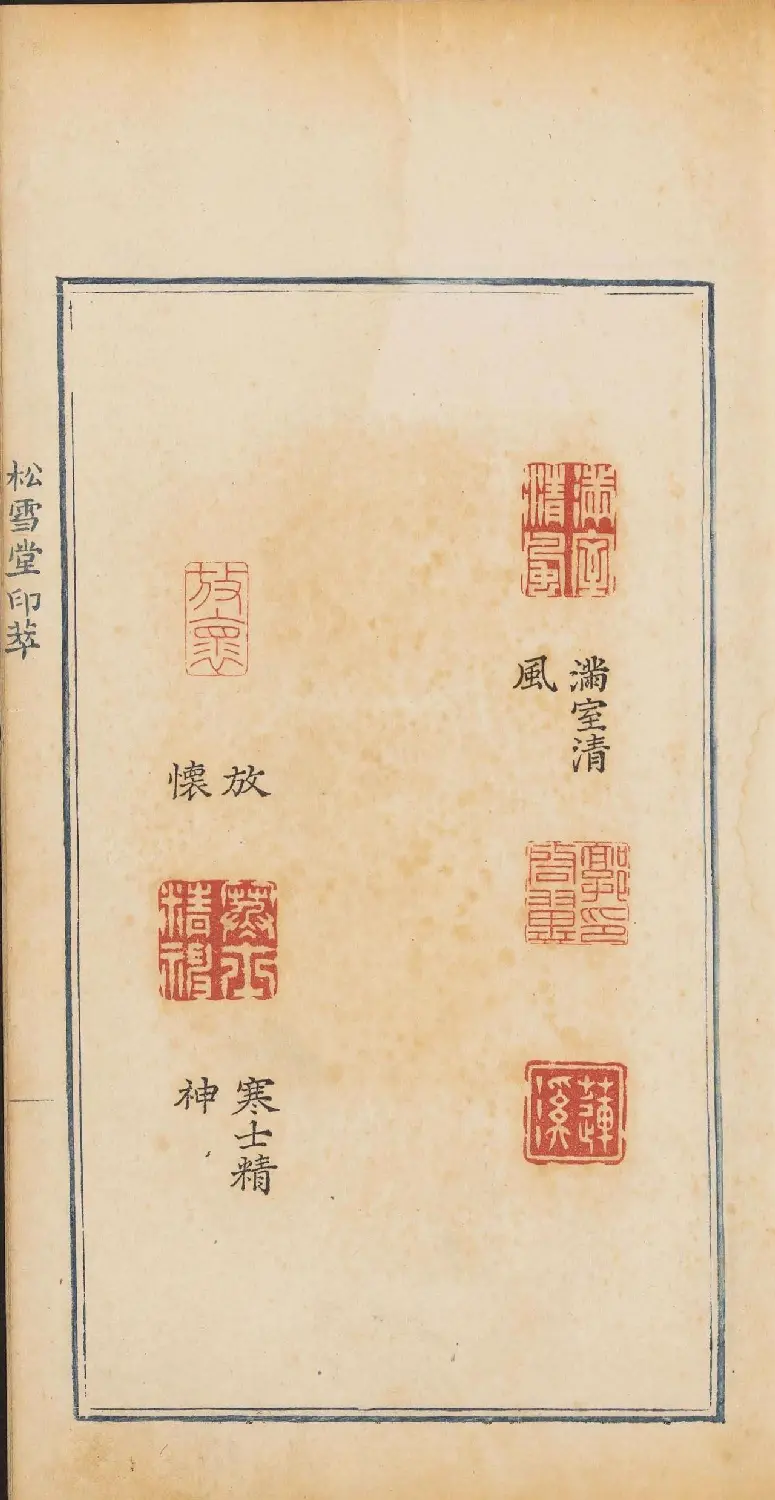 滿室清風
滿室清
風
郭印啓翼
蓮溪
放懷
放
懷
寒士精神
寒士精
神
松雪堂印萃